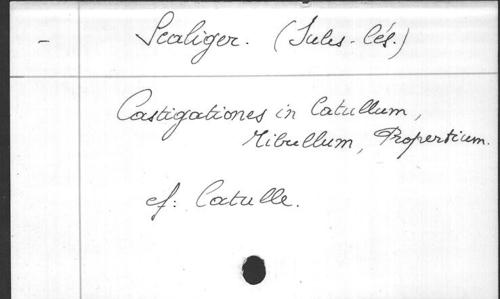 - Scaliger. (Jules-Cés.)
Castigationes in Catullum,
Tibullum, Propertium.
cf: Catulle.